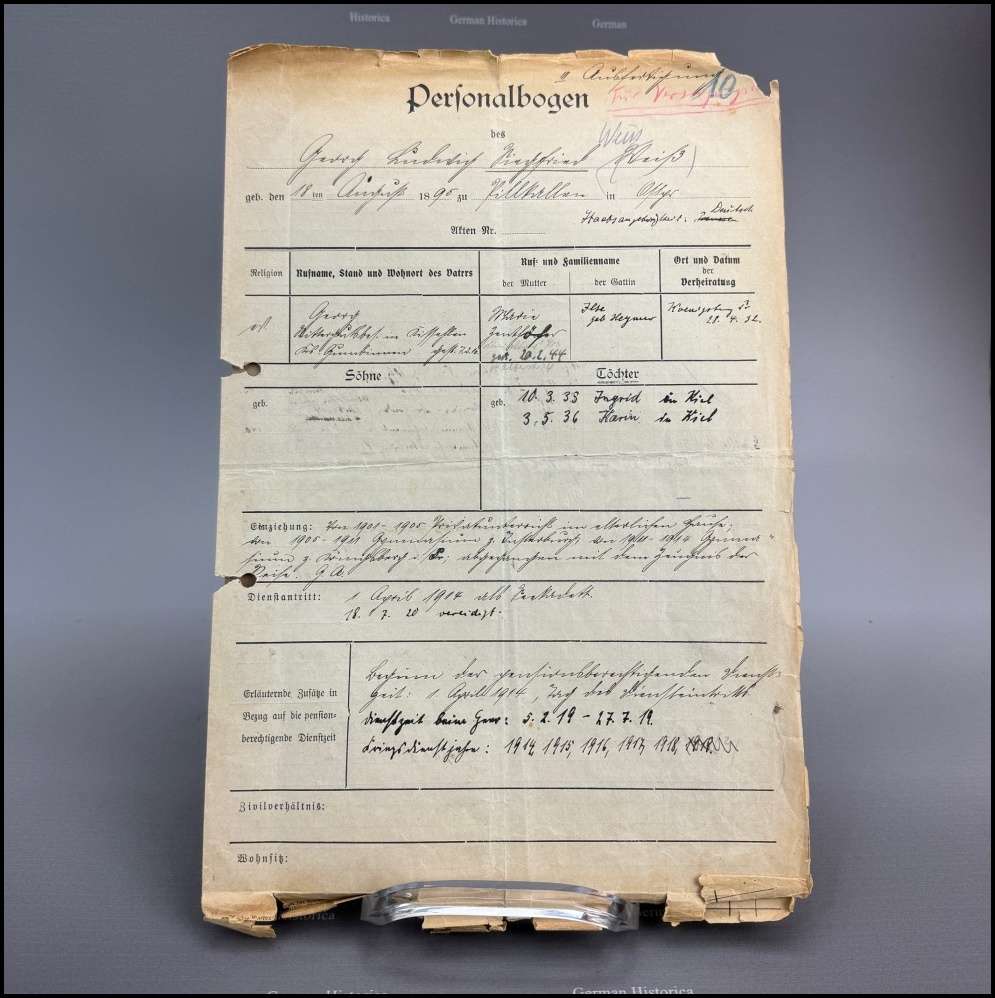 Historica German Historica German
II Ausfertigung 10
Personalbogen
des Weiß
Georg Ludwig Siegfried (Weiß)
geb. den 18 ten August 1895 zu Pillkallen in Ostpr
Staatsangehörigkeit: Preussen Deutsch
Akten Nr.
Religion
Rufname, Stand und Wohnort des Vaters
Ruf- und Familienname
der Mutter
der Gattin
Ort und Datum
der
Verheiratung
ev
Georg
Rittergutsbes. in
Krs Gumbinnen gest.
Marie
gest. 20.2.44
Ilse
geb.
Koenigsberg Pr
28. 4. 32.
Söhne
Töchter
geb.
geb. 10. 3. 33 Ingrid in Kiel
3. 5. 36 Karin in Kiel
Erziehung: Von 1901 - 1905 Privatunterricht im elterlichen Hause;
von 1905 - 1911 Gymnasium z. Insterburg, von 1911 - 1914 Gymna-
sium z. Königsberg i. Pr., abgegangen mit dem Zeugnis der
Reife.
Dienstantritt: 1 April 1914 als Seekadett.
18. 7. 20 vereidigt.
Erläuternde Zusätze in
Bezug auf die pension-
berechtigende Dienstzeit
Beginn der pensionsberechtigenden Dienst-
zeit: 1 April 1914, Tag des Diensteintritts
Dienstzeit beim Heer: 5. 2. 19 - 27. 7. 19.
Kriegsdienstjahre: 1914, 1915, 1916, 1917, 1918, 1919
Zivilverhältnis:
Wohnsitz:
Historica
German Historica German Historica